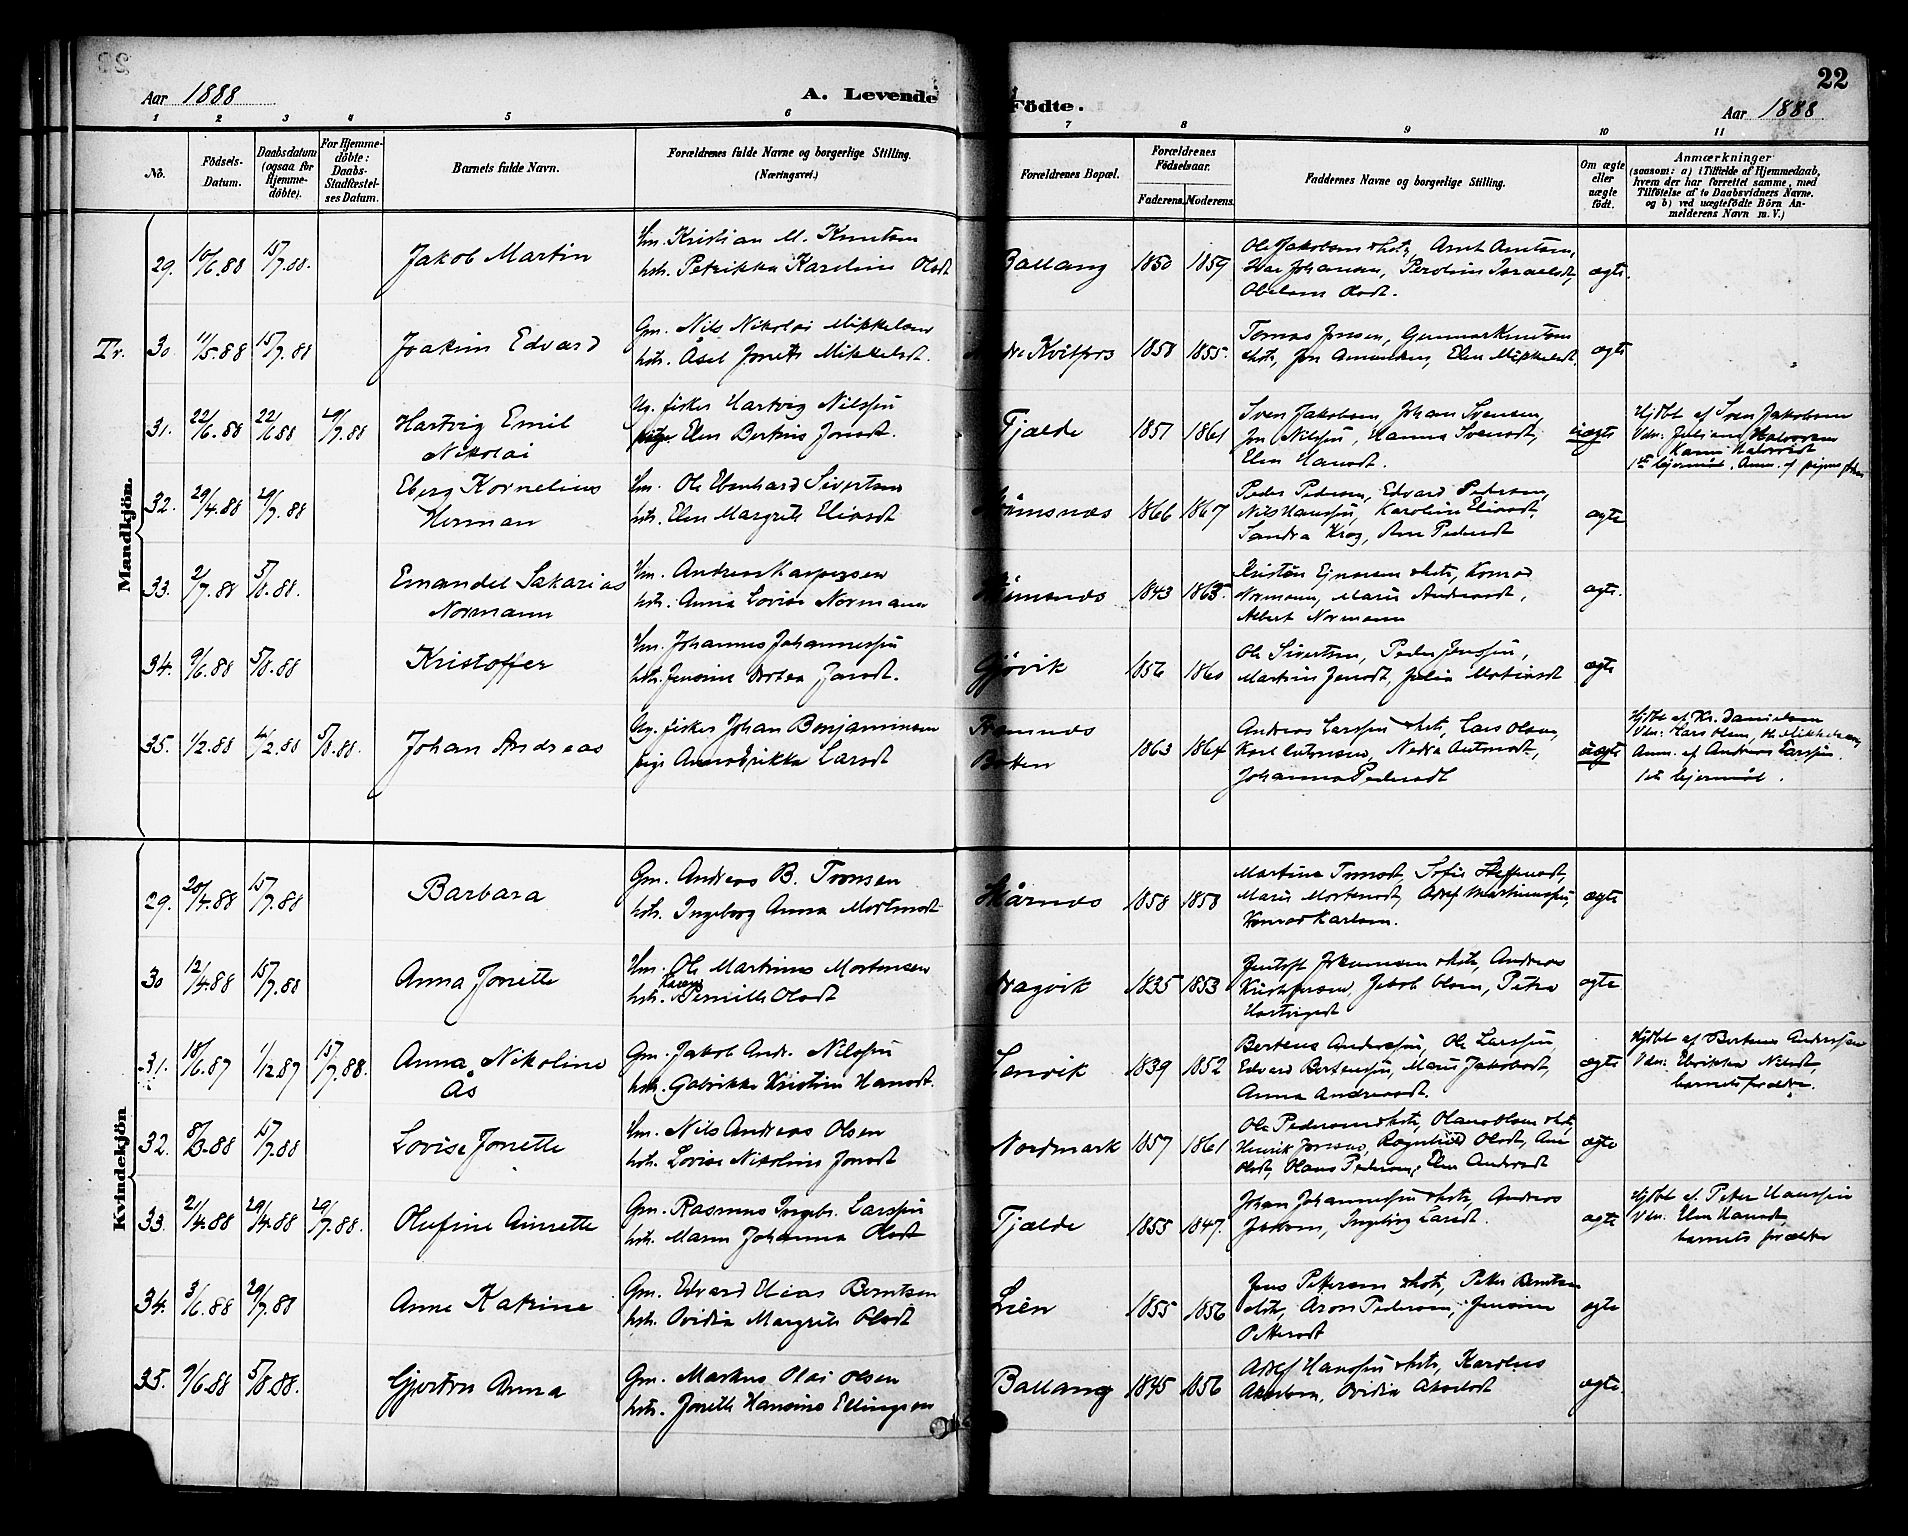 22
Aar 1888
A. Levende Födte.
Aar 1888
1 2 3 4 5 6 7 8 9 10 11
No.
Födsels-
Datum.
Daabsdatum
(ogsaa for
Hjemme-
döbte).
For Hjemme-
döbte:
Daabs-
Stadfæstel-
ses Datum.
Barnets fulde Navn.
Forældrenes fulde Navne og borgerlige Stilling.
(Næringsvei.)
Forældrenes Bopæl.
Forældrenes
Födselsaar.
Faderens. Moderens.
Faddernes Navne og borgerlige Stilling.
Om ægte
eller
uægte
födt.
Anmærkninger
(saasom: a) i Tilfælde af Hjemmedaab,
hvem der har forrettet samme, med
Tilföielse af to Daabsvidners Navne.
og b) ved uægtefödte Börn An-
melderens Navn m. V.)
Mandkjön.
29. 10/6.88 15/7.88. Jakob Martin
Im. Kristian M. Knutsen
hstr. Petrikka Karoline Olsdt
Ballang 1850 1859
Ole Jakobsen & hstr, Arnt Arntsen,
Ivar Johansen, Peroline Israelsdt,
Obelone Olsdt.
ægte.
Tr. 30. 11/5.88 15/7.88 Joakim Edvard
Gm. Nils Nikolai Mikkelsen
hstr. Åsel Jonette Mikkelsdt.
Kvitfors 1858 1855.
Tomas Jonsen, Gunnar Knutsen
& hstr, Jon Amundsen, Elen Mikkelsdt.
ægte
31. 22/6.88 22/6.88 29/7.88 Hartvig Emil
Nikolai
Ug. fisker Hartvig Nilssen
pige Elen Bertine Jonsdt.
Fjælde 1857 1861
Sven Jakobsen, Johan Svensen,
Jon Nilssen, Hanna Svensdt,
Elen Hansdt.
uægte
Hjdbt af Sven Jakobsen
Vdn: Juliane Halvorsen
Karen Halvorsdt
1ste leiermaal. Anm. af pigens far
32. 29/4.88 29/7.88 Eberg Kornelius
Herman
Im. Ole Ebenhard Sivertsen
hstr. Elen Margrete Eliasdt
1866 1867
Peder Pedersen, Edvard Pedersen,
Nils Hanssen, Karoline Eliasdt,
Sandra Krog, Ane Pedersdt
ægte
33. 2/7.88 5/8.88. Emandel Sakarias
Normann
Im. Andreas Kaspersen
hstr. Anna Lovise Normann
1843 1863.
Kristen Ejnarsen & hstr, Konrad
Normann, Marie Andreasdt,
Albert Normann
ægte.
34. 9/6.88 5/8.88 Kristoffer
Im. Johannes Johannessen
hstr. Jensine Dortea Jansdt.
Gjövik 1856 1860
Ole Sivertsen, Peder Jenssen,
Martine Jensdt, Julia Matiasdt
ægte
35. 1/2.88 4/2.88 5/8.88. Johan Andreas
Ug. fisker Johan Benjaminsen
pige Anna Erikka Larsdt
Framnes
Botten 1863 1864
Andreas Larssen & hstr, Lars Olsen,
Karl Antonsen, Nadra Antonsdt,
Johanna Pedersdt
uægte
Hjdbt af Kr. Danielsen
Vdn: Lars Olsen, H. Mikkelsen,
Anm. af Andreas Larssen.
1ste leiermaal.
Kvindekjön
29. 20/4.88 15/7.88 Barbara
Gm. Andreas B. Tronsen
hstr. Ingeborg Anna Mortensdt
Skårnes 1858 1858
Martina Tronsdt, Sofie Steffensdt,
Marie Mortensdt, Adolf Martinussen,
Konrad Karlsen.
ægte
30 12/4.88 15/7.88 Anna Jonette
Im. Ole Martinus Mortensen
hstr. Karen Pernille Olsdt
Dragvik 1835 1853
Gentoft Johannesen & hstr, Andreas
Kristofersen, Jakob Olsen, Petra
Hartvigsdt
ægte
31. 18/6.87 1/12.87 15/7.88. Anna Nikoline
Ås
Gm. Jakob Andr. Nilssen
hstr. Gabrikke Kristine Hansdt.
Lanvik 1839 1852
Bertens Anderssen, Ole Larssen,
Edvard Bertenssen, Marie Jakobsdt,
Anna Andreasdt.
ægte
Hjdbt af Bertens Anderssen
Vdn: Ulrikka Nilsdt,
barnets forældre.
32. 8/3.88 15/7.88 Lovise Jonette
Im. Nils Andreas Olsen
hstr. Lovise Nikoline Jonsdt
Nordmark 1857 1861
Ole Pedersen & hstr, Olaus Olsen & hstr,
Henrik Jonssen, Ragnhild Olsdt, Ane
Olsdt, Olaus Pedersen, Elen Andreasdt
ægte
33. 21/4.88 29/4.88 29/7.88. Olufine Ainrette
Gm. Rasmus Ingebr. Larssen
hstr. Maren Johanna Olsdt
Fjælde 1855 1847.
Johan Johannessen & hstr, Andreas
Jakobsen, Ingeborg Larsdt.
ægte
Hjdbt af Peter Hanssen
Vdn: Elen Hansdt,
barnets forældre
34. 3/6.88 29/7.88 Anne Katrine
Gm. Edvard Elias Berntsen
hstr. Ovidia Margrete Olsdt
Lien 1855 1856
Jens Petersen & hstr, Peter Berntsen
& hstr, Aron Pedersen, Jensine
Pettersdt
ægte
35. 9/6.88 5/8.88. Gjertru Anna
Gm. Markus Olai Olsen
hstr. Jonette Hansine Ellingsen
Ballang 1845 1856
Adolf Hanssen & hstr, Karolus
Akselsen, Ovidia Akselsdt
ægte.